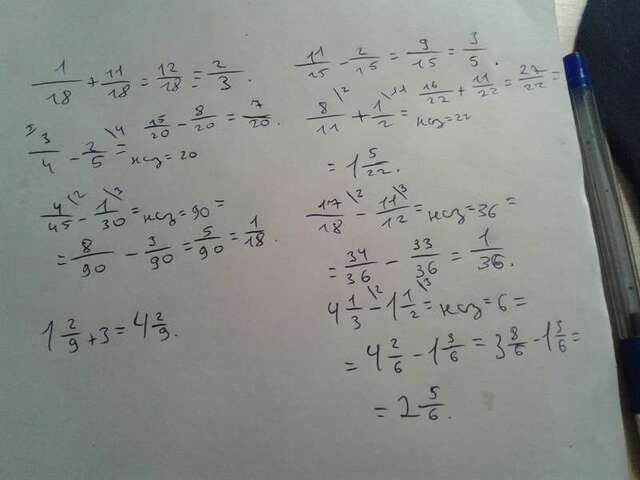 1/18 + 11/18 = 12/18 = 2/3.
3/4 - 2/5 \4 = 15/20 - 8/20 = 7/20.
нсз = 20
4/45 \2 - 1/30 \3 = нсз = 90 =
= 8/90 - 3/90 = 5/90 = 1/18.
1 2/9 + 3 = 4 2/9.
11/15 - 2/15 = 9/15 = 3/5.
8/11 \2 + 1/2 \11 = 16/22 + 11/22 = 27/22 =
нсз = 22
= 1 5/22.
17/18 \2 - 11/12 \3 = нсз = 36 =
= 34/36 - 33/36 = 1/36.
4 1/3 \2 - 1 1/2 \3 = нсз = 6 =
= 4 2/6 - 1 3/6 = 3 8/6 - 1 3/6 =
= 2 5/6.